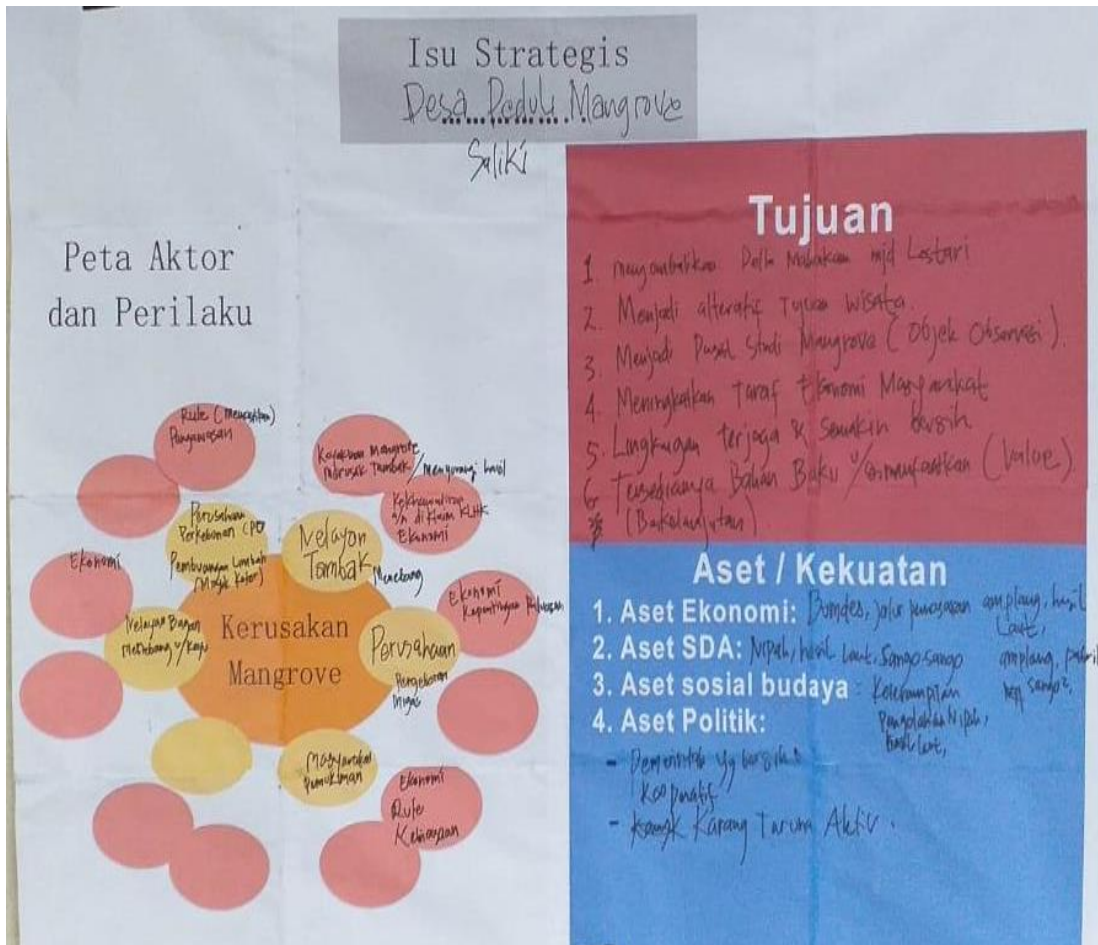 Isu Strategis
Desa Peduli Mangrove
Saliki
Peta Aktor
dan Perilaku
Rule (
Pengawasan
Kerusakan Mangrove
merusak Tambak / mengurangi hasil
Kekhawatiran
di klaim KLHK
Ekonomi
Perusahaan
Perkebunan CPO
Pembuangan Limbah
Nelayan
Tambak
Menebang
Ekonomi
Ekonomi
Kepentingan
Nelayan Bagan
Menebang u/ Kayu
Kerusakan
Mangrove
Perusahaan
Pengeboran
Migas
Masyarakat
Pemukiman
Ekonomi
Rule
Kebiasaan
Tujuan
1 mengembalikan Delta Mahakam mjd Lestari
2. Menjadi alteratif Tujuan wisata.
3. Menjadi Pusat Studi Mangrove (Objek Observasi).
4. Meningkatkan Taraf Ekonomi Masyarakat
5. Lingkungan terjaga & Semakin bersih
6 Tersedianya Bahan Baku u/ dimanfaatkan (Value)
Aset / Kekuatan
1. Aset Ekonomi: Bumdes, jalur pemasaran amplang, hasil
Laut,
2. Aset SDA: Nipah, hasil Laut, Sango-sango
amplang,
3. Aset sosial budaya :
Pengolahan Nipah,
hasil Laut,
4. Aset Politik:
- Pemerintah yg bersikap
Kooperatif
- Karang Taruna Aktiv.